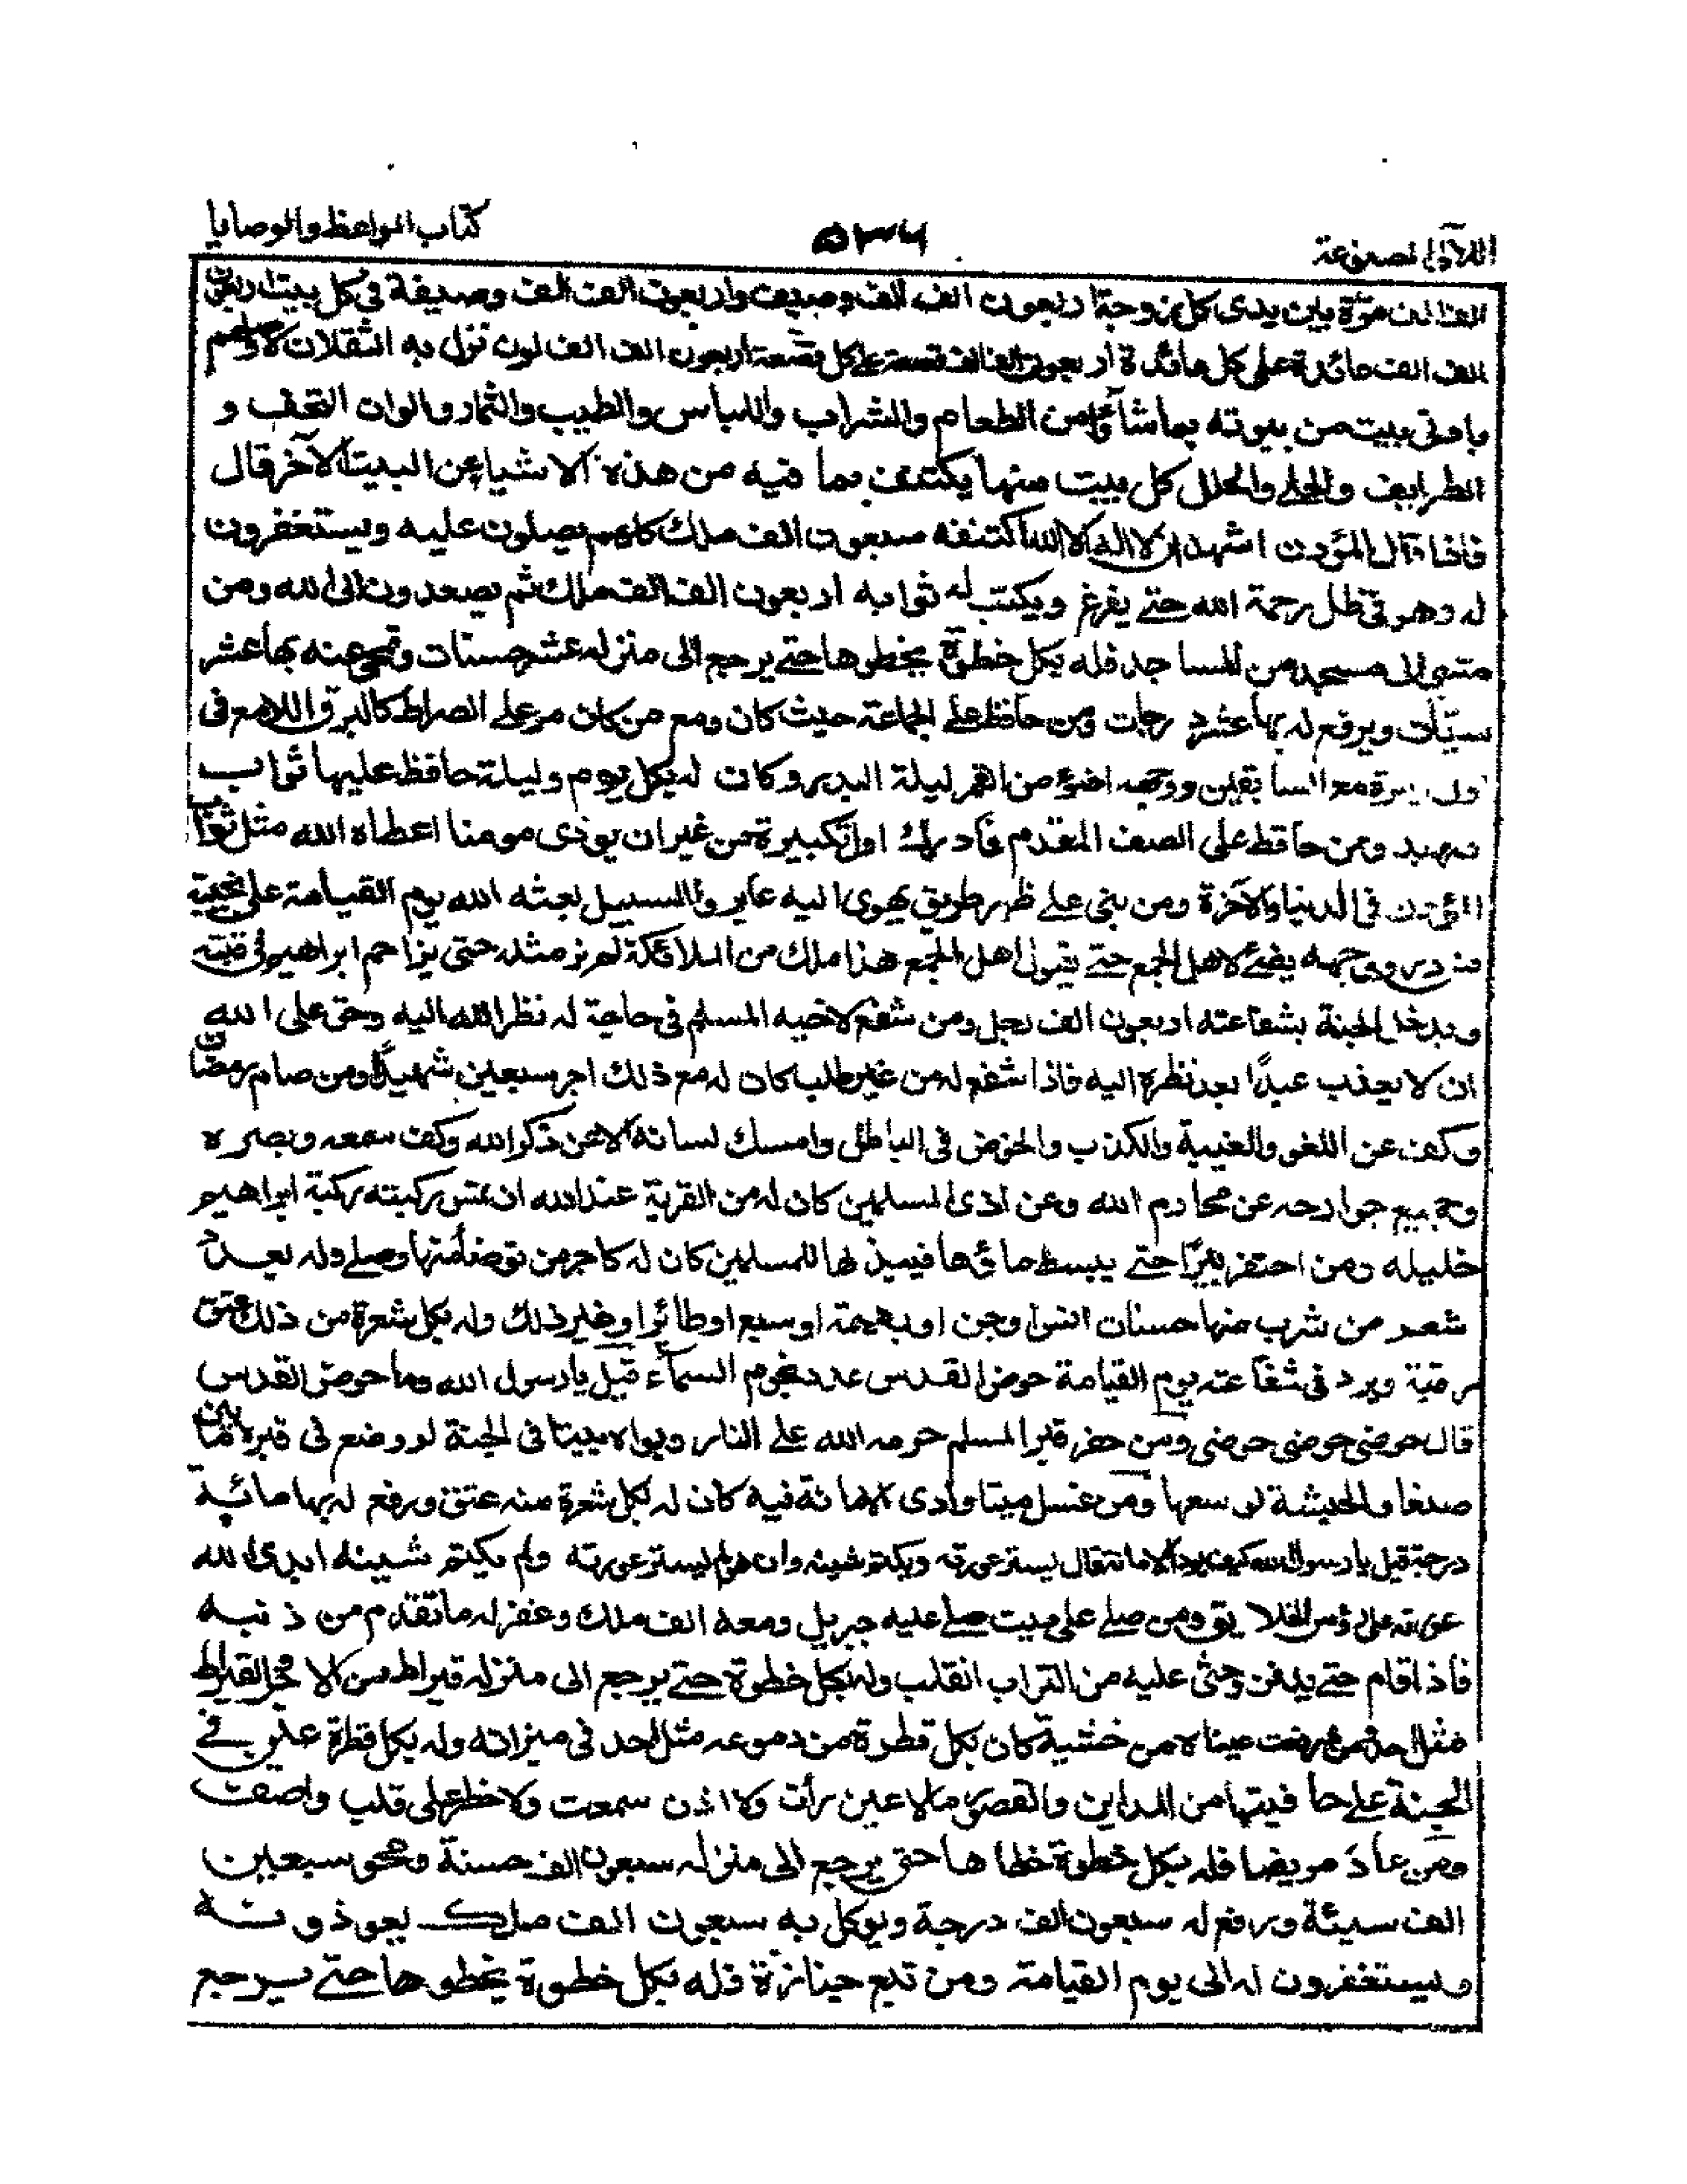 اللآلی المصنوعة
۵۳۶
كتاب المواعظ والوصايا
الف الف مرّة بين يدى كل زوجة اربعون الف الف وصيف واربعون الف الف وصيفة فى كل بيت اربعون
الف الف مائدة على كل مائدة اربعون الف الف قصعة على كل قصعة اربعون الف الف لون نزل به الثقلان لاوسعهم
بادنى بيت من بيوته بما شاؤا من الطعام والشراب واللباس والطيب والثمار والوان التحف و
الطرايف والحلى والحلل كل بيت منها يكتفى بما فيه من هذه الاشياء عن البيت الآخر قال
فاذا قال المؤذن اشهد ان لا اله الا الله اكتنفه سبعون الف ملك كلهم يصلون عليه ويستغفرون
له وهو فى ظل رحمة الله حتى يفرغ ويكتب له ثوابه اربعون الف الف ملك ثم يصعدون الى الله ومن
مشى الى مسجد من المساجد فله بكل خطوة يخطوها حتى يرجع الى منزله عشر حسنات وتمحى عنه بها عشر
سيّات ويرفع له بها عشر درجات ومن حافظ على الجماعة حيث كان ومع من كان مر على الصراط كالبرق اللامع فى
اول زمرة مع السابقين ووجهه اضوء من القمر ليلة البدر وكان له بكل يوم وليلة حافظ عليها ثواب
شهيد ومن حافظ على الصف المقدم فادرك اول تكبيرة من غير ان يوذى مومنا اعطاه الله مثل ثواب
المؤذن فى الدنيا والآخرة ومن بنى على ظهر طريق يهوى اليه عابروا السبيل بعثه الله يوم القيامة على نجيبة
من در ووجهه يضئ لاهل الجمع حتى يقول اهل الجمع هذا ملك من الملائكة لم ير مثله حتى يزاحم ابراهيم فى قبته
ويدخل الجنة بشفاعته اربعون الف رجل ومن شفع لاخيه المسلم فى حاجة له نظر الله اليه وحق على الله
ان لا يعذب عبدًا بعد نظره اليه فاذا شفع له من غير طلب كان له مع ذلك اجر سبعين شهيدًا ومن صام رمضان
وكف عن اللغو والغيبة والكذب والخوض فى الباطل وامسك لسانه الا عن ذكر الله وكف سمعه وبصره
وجميع جوارحه عن محارم الله وعن اذى المسلمين كان له من القربة عند الله ان تمس ركبته ركبة ابراهيم
خليله ومن احتفر بيرًا حتى يبسط ماؤها فيبذلها للمسلمين كان له كاجر من توضأ منها وصلى وله بعدد
شعر من شرب منها حسنات انس او جن او بهيمة او سبع او طائر او غير ذلك وله بكل شعرة من ذلك عتق
رقبة ويرد فى شفاعته يوم القيامة حوض القدس عدد نجوم السماء قيل يا رسول الله وما حوض القدس
قال حوضى حوضى حوضى ومن حفر قبر المسلم حرمه الله على النار وبواه بيتا فى الجنة لو وضع فى قبر ما بين
صنعا والحبشة لوسعها ومن غسل ميتا وادى الامانة فيه كان له بكل شعرة منه عتق ورفع له بها مائة
درجة قيل يا رسول الله كيف يودى الامانة قال يستر عورته ويكتم شينه وان هو لم يستر عورته ولم يكتم شينه ابدى الله
عورته على رؤس الخلايق ومن صلى على ميت صلى عليه جبريل ومعه الف ملك وغفر له ما تقدم من ذنبه
فاذا اقام حتى يدفن وحثى عليه من التراب انقلب وله بكل خطوة حتى يرجع الى منزله قيراط من الاجر القيراط
مثل احد ومن ذرفت عيناه من خشية كان بكل قطرة من دموعه مثل احد فى ميزانه وله بكل قطرة عين فى
الجنة على حافيتها من المداين والقصور ما لا عين رأت ولا اذن سمعت ولا خطر على قلب واصف
ومن عاد مريضا فله بكل خطوة خطاها حتى يرجع الى منزله سبعون الف حسنة ومحو سبعين
الف سيئة ورفع له سبعون الف درجة ويوكل به سبعون الف ملك يعوذونه
ويستغفرون له الى يوم القيامة ومن تبع جنازة فله بكل خطوة يخطوها حتى يرجع